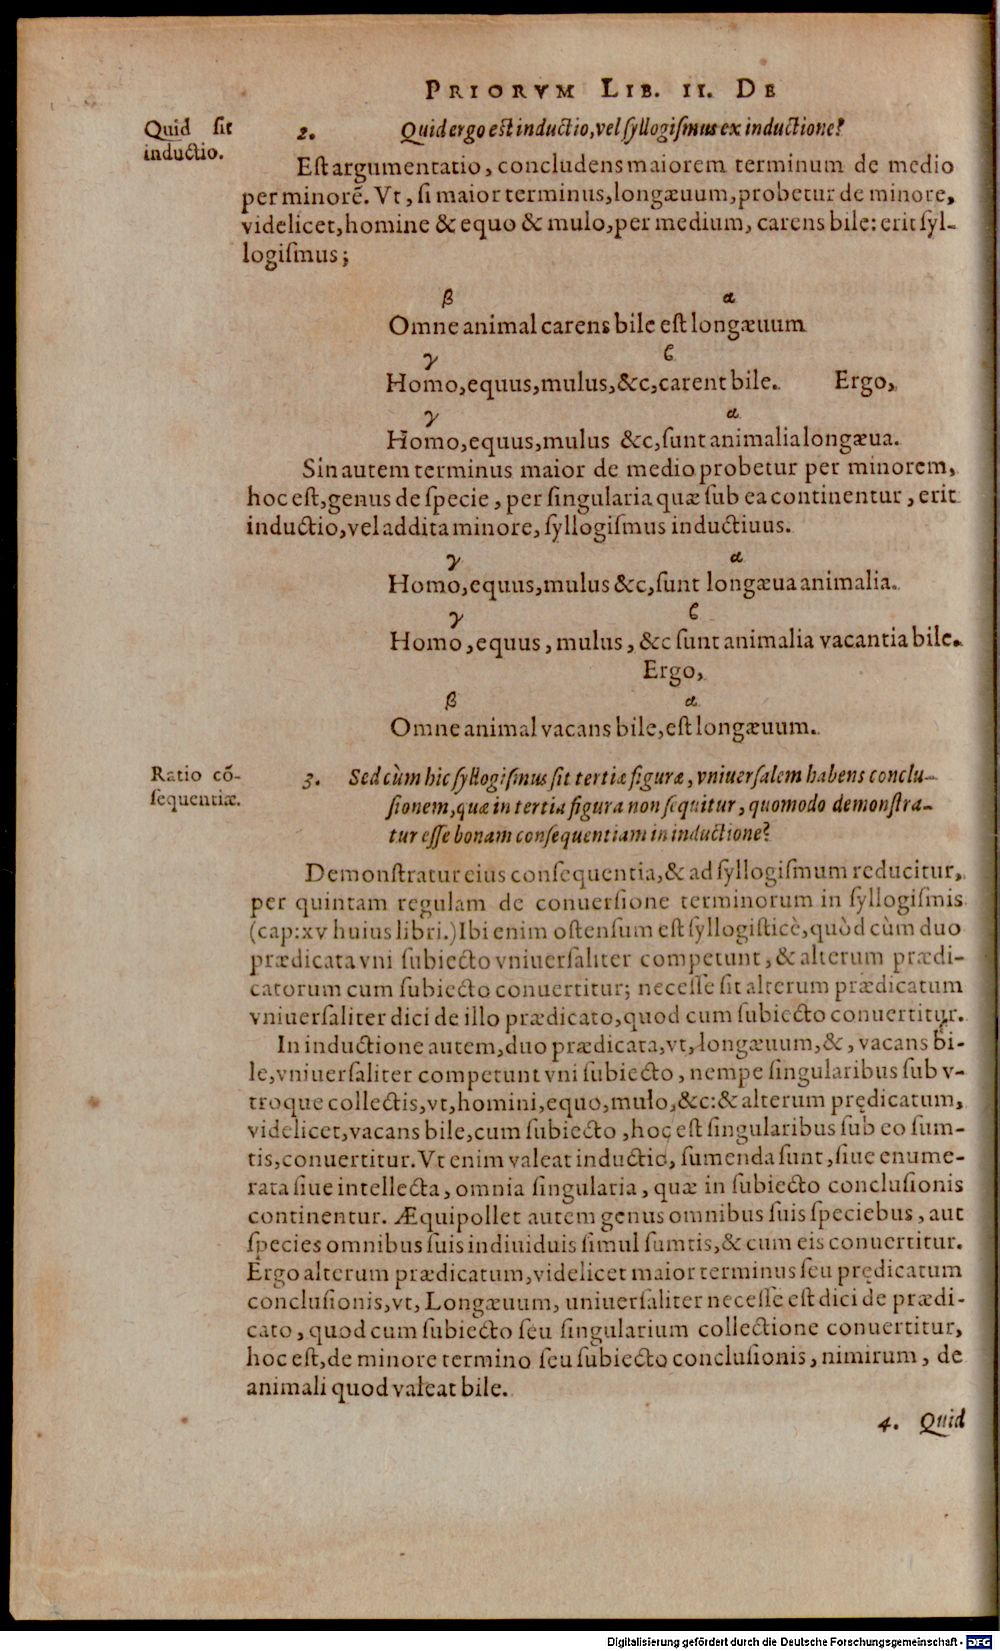 PRIORVM LIB. II. DE
Quid sit
inductio.
2. Quid ergo est inductio, vel syllogismus ex inductione?
Est argumentatio, concludens maiorem terminum de medio
per minorẽ. Vt, si maior terminus, longæuum, probetur de minore,
videlicet, homine & equo & mulo, per medium, carens bile: erit syl-
logismus;
β α
Omne animal carens bile est longæuum
γ ϐ
Homo, equus, mulus, &c, carent bile. Ergo,
γ α
Homo, equus, mulus &c, sunt animalia longæua.
Sin autem terminus maior de medio probetur per minorem,
hoc est, genus de specie, per singularia quæ sub ea continentur, erit
inductio, vel addita minore, syllogismus inductiuus.
γ α
Homo, equus, mulus &c, sunt longæua animalia.
γ ϐ
Homo, equus, mulus, &c sunt animalia vacantia bile.
Ergo,
β α
Omne animal vacans bile, est longæuum.
Ratio cõ-
sequentiæ.
3. Sed cùm hic syllogismus sit tertiæ figuræ, vniuersalem habens conclu-
sionem, quæ in tertia figura non sequitur, quomodo demonstra-
tur esse bonam consequentiam in inductione?
Demonstratur eius consequentia, & ad syllogismum reducitur,
per quintam regulam de conuersione terminorum in syllogismis
(cap: xv huius libri.) Ibi enim ostensum est syllogisticè, quòd cùm duo
prædicata vni subiecto vniuersaliter competunt, & alterum prædi-
catorum cum subiecto conuertitur; necesse sit alterum prædicatum
vniuersaliter dici de illo prædicato, quod cum subiecto conuertitur.
In inductione autem, duo prædicata, vt, longæuum, &, vacans bi-
le, vniuersaliter competunt vni subiecto, nempe singularibus sub v-
troque collectis, vt, homini, equo, mulo, &c: & alterum prędicatum,
videlicet, vacans bile, cum subiecto, hoc est singularibus sub eo sum-
tis, conuertitur. Vt enim valeat inductio, sumenda sunt, siue enume-
rata siue intellecta, omnia singularia, quæ in subiecto conclusionis
continentur. Æquipollet autem genus omnibus suis speciebus, aut
species omnibus suis indiuiduis simul sumtis, & cum eis conuertitur.
Ergo alterum prædicatum, videlicet maior terminus seu prędicatum
conclusionis, vt, Longæuum, uniuersaliter necesse est dici de prædi-
cato, quod cum subiecto seu singularium collectione conuertitur,
hoc est, de minore termino seu subiecto conclusionis, nimirum, de
animali quod valeat bile.
4. Quid
Digitalisierung gefördert durch die Deutsche Forschungsgemeinschaft - DFG